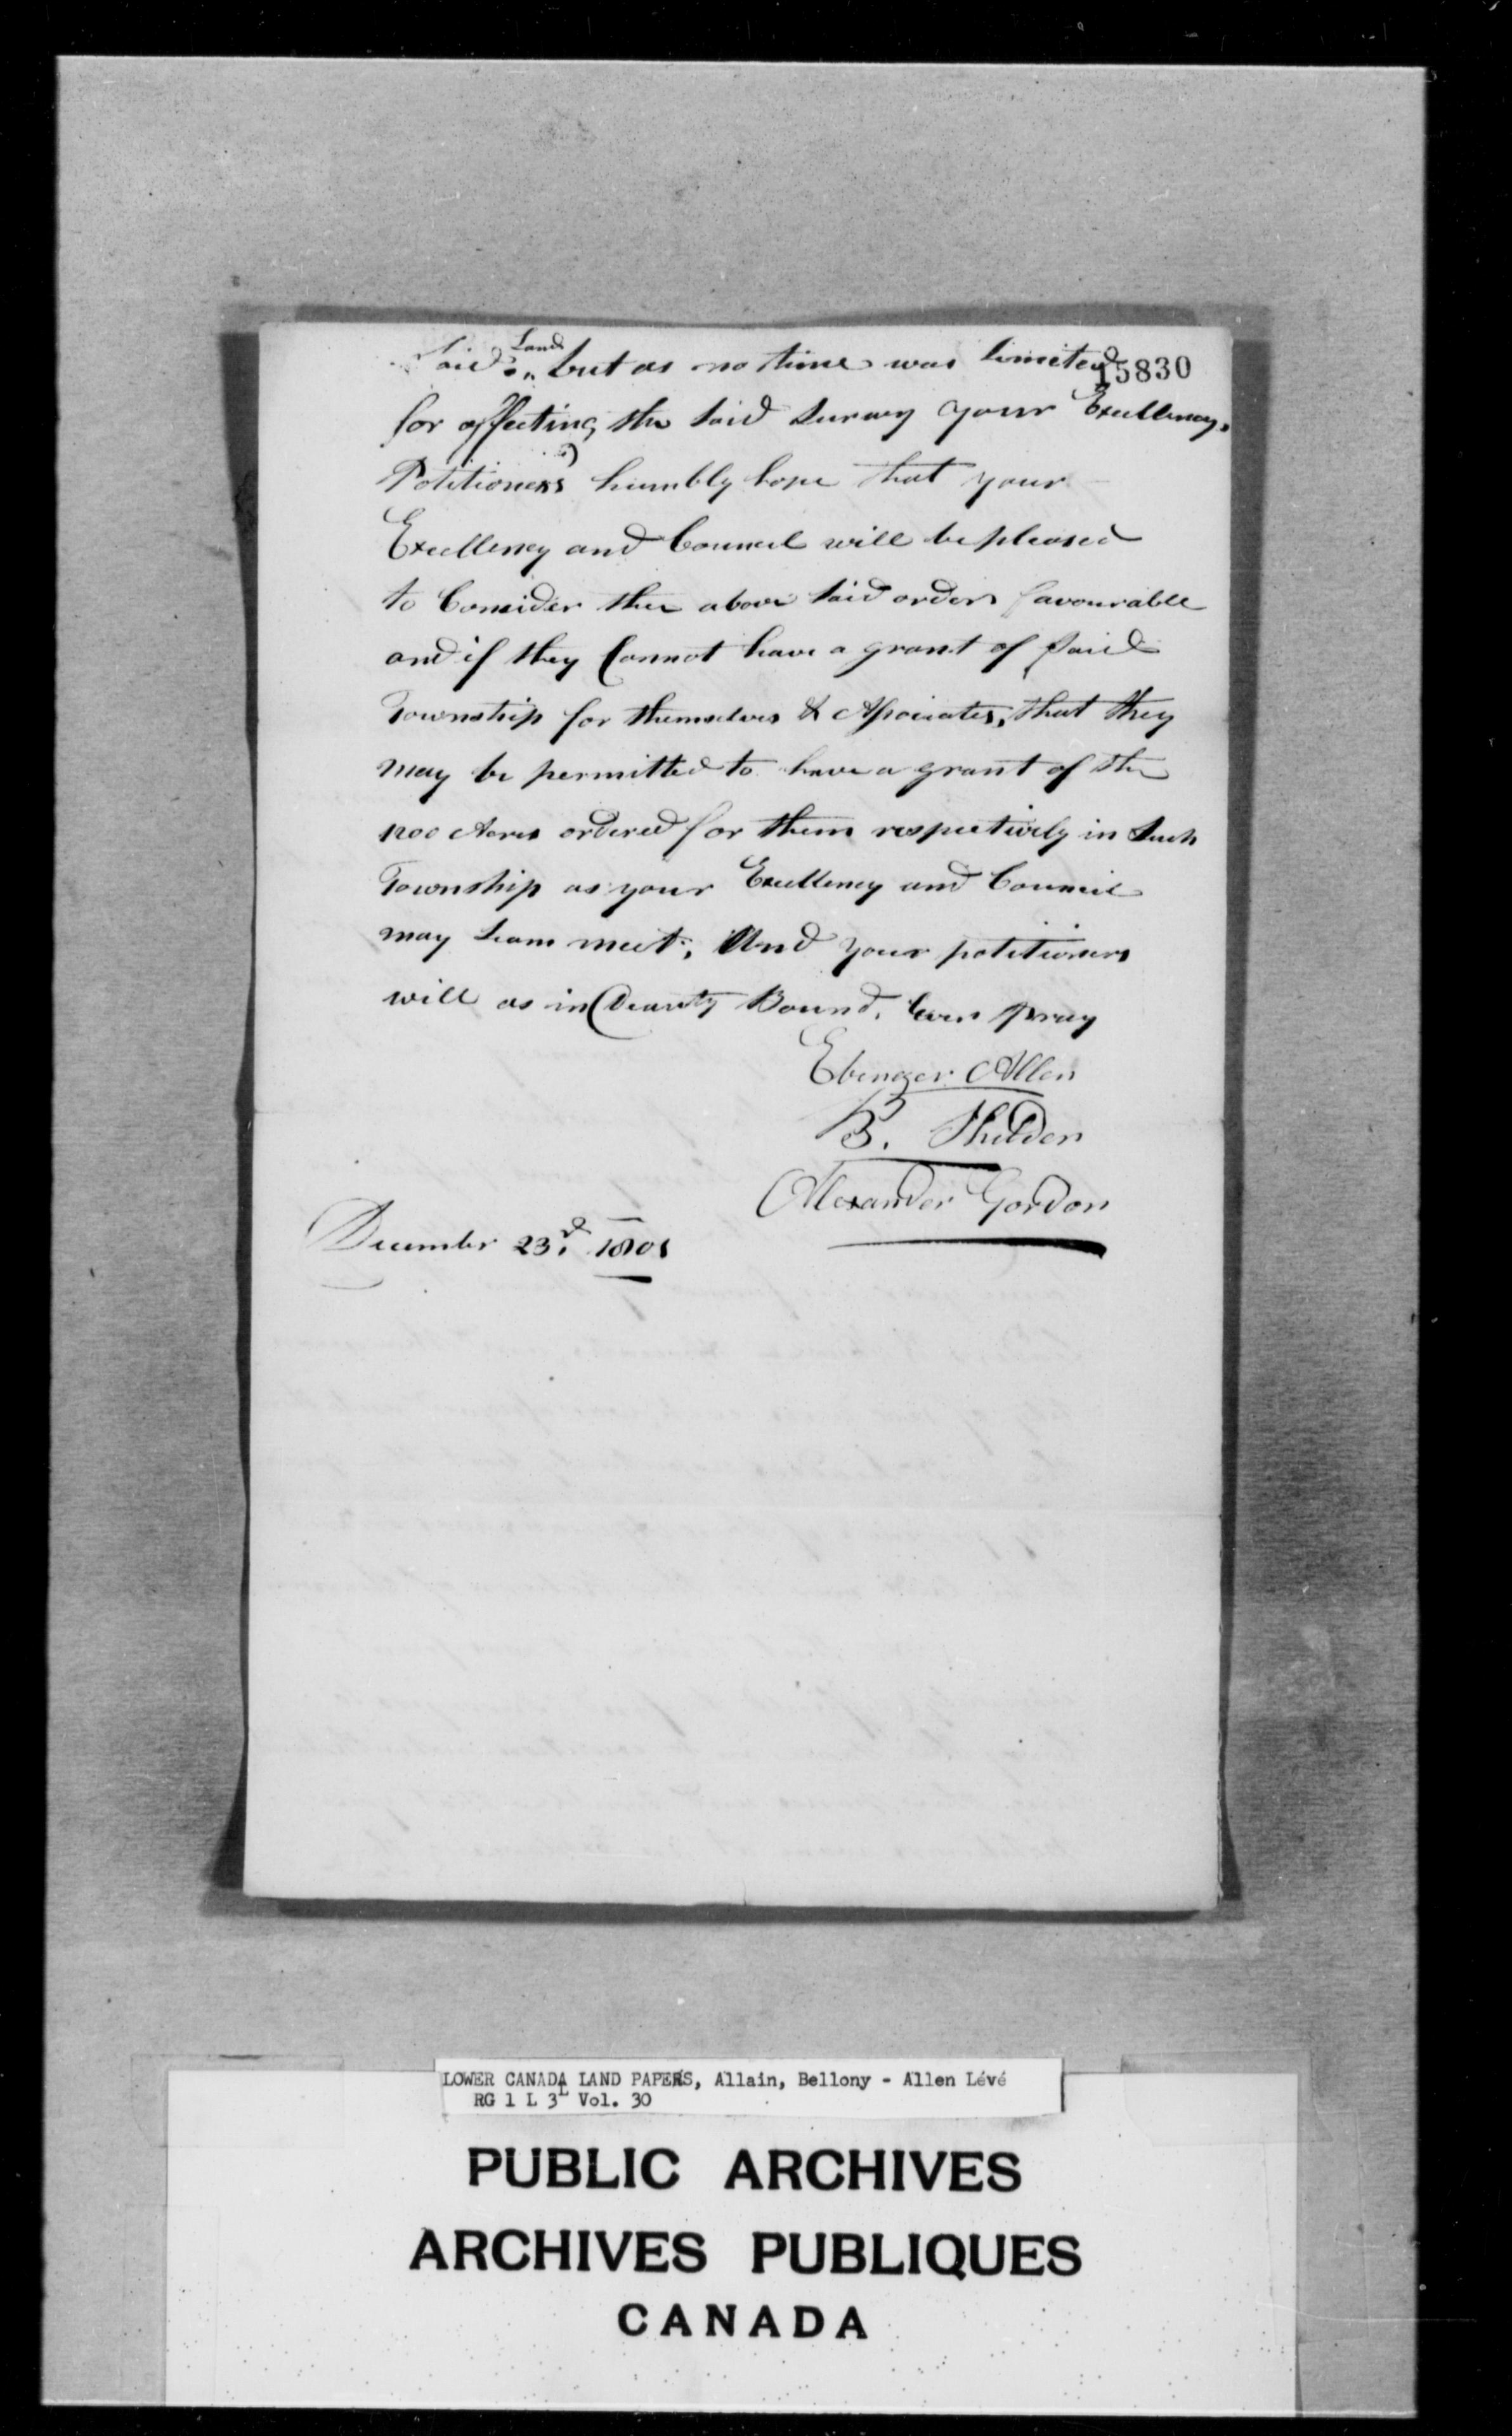 Said Land but as no time was limited
15830
for effecting the said Survey your Excellency,
Petitioners humbly hope that your
Excellency and Council will be pleased
to Consider the above said orders favourable
and if they Cannot have a grant of said
Township for themselves & Associates, that they
may be permitted to have a grant of the
1200 Acres ordered for them respectively in Such
Township as your Excellency and Council
may Seam meet; And your petitioners
will as in Deauty Bound. Ever pray
Ebenezer Allen
B. Shelden
Alexander Gordon
December 23d. 1801
LOWER CANADA LAND PAPERS, Allain, Bellony - Allen Lévé
RG 1 L 3L Vol. 30
PUBLIC ARCHIVES
ARCHIVES PUBLIQUES
CANADA